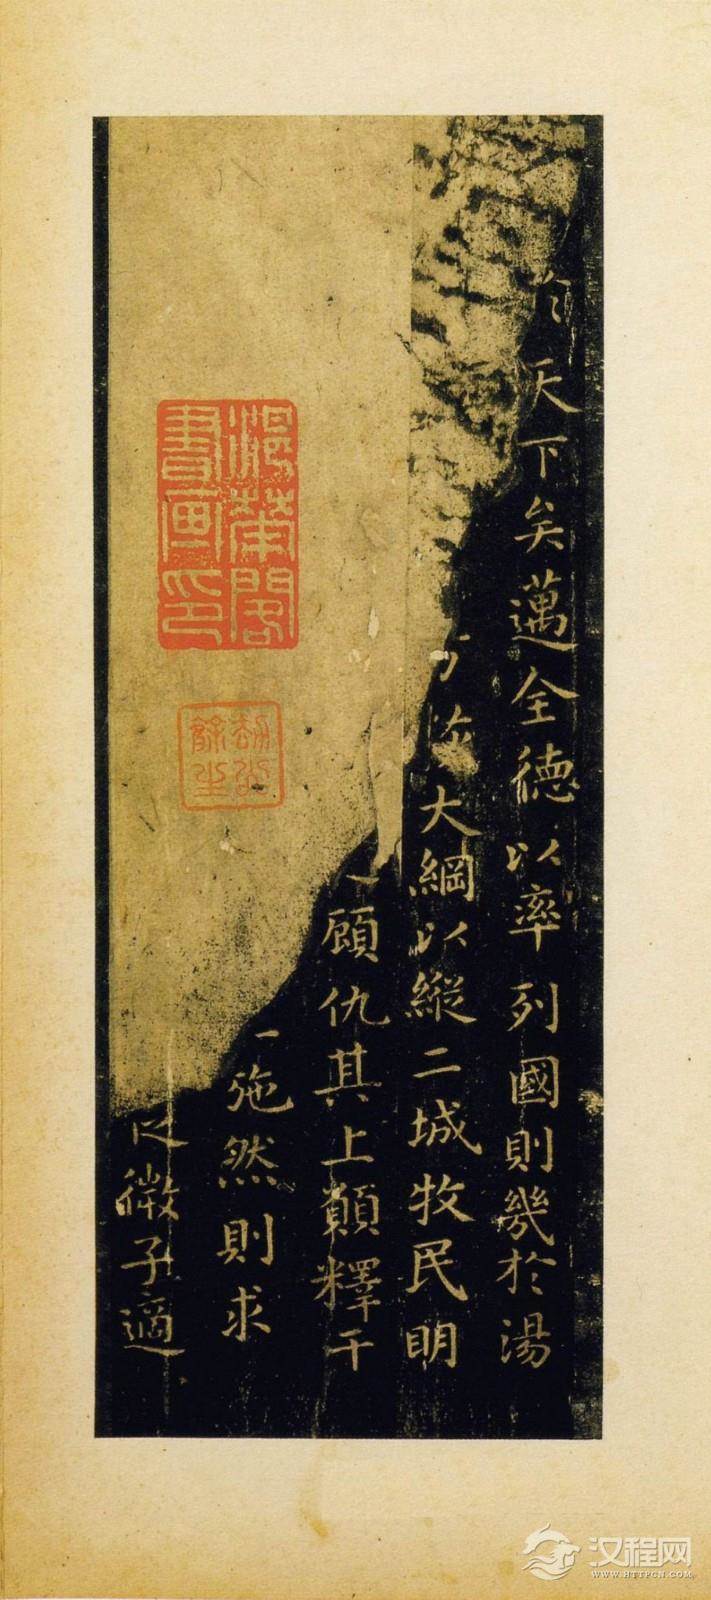 天下矣邁全德以率列國則幾於湯
大綱以縱二城牧民明
顧仇其上願釋干
然則求
微子適
閣
書画印
汉程网
WWW.HTTPCN.COM